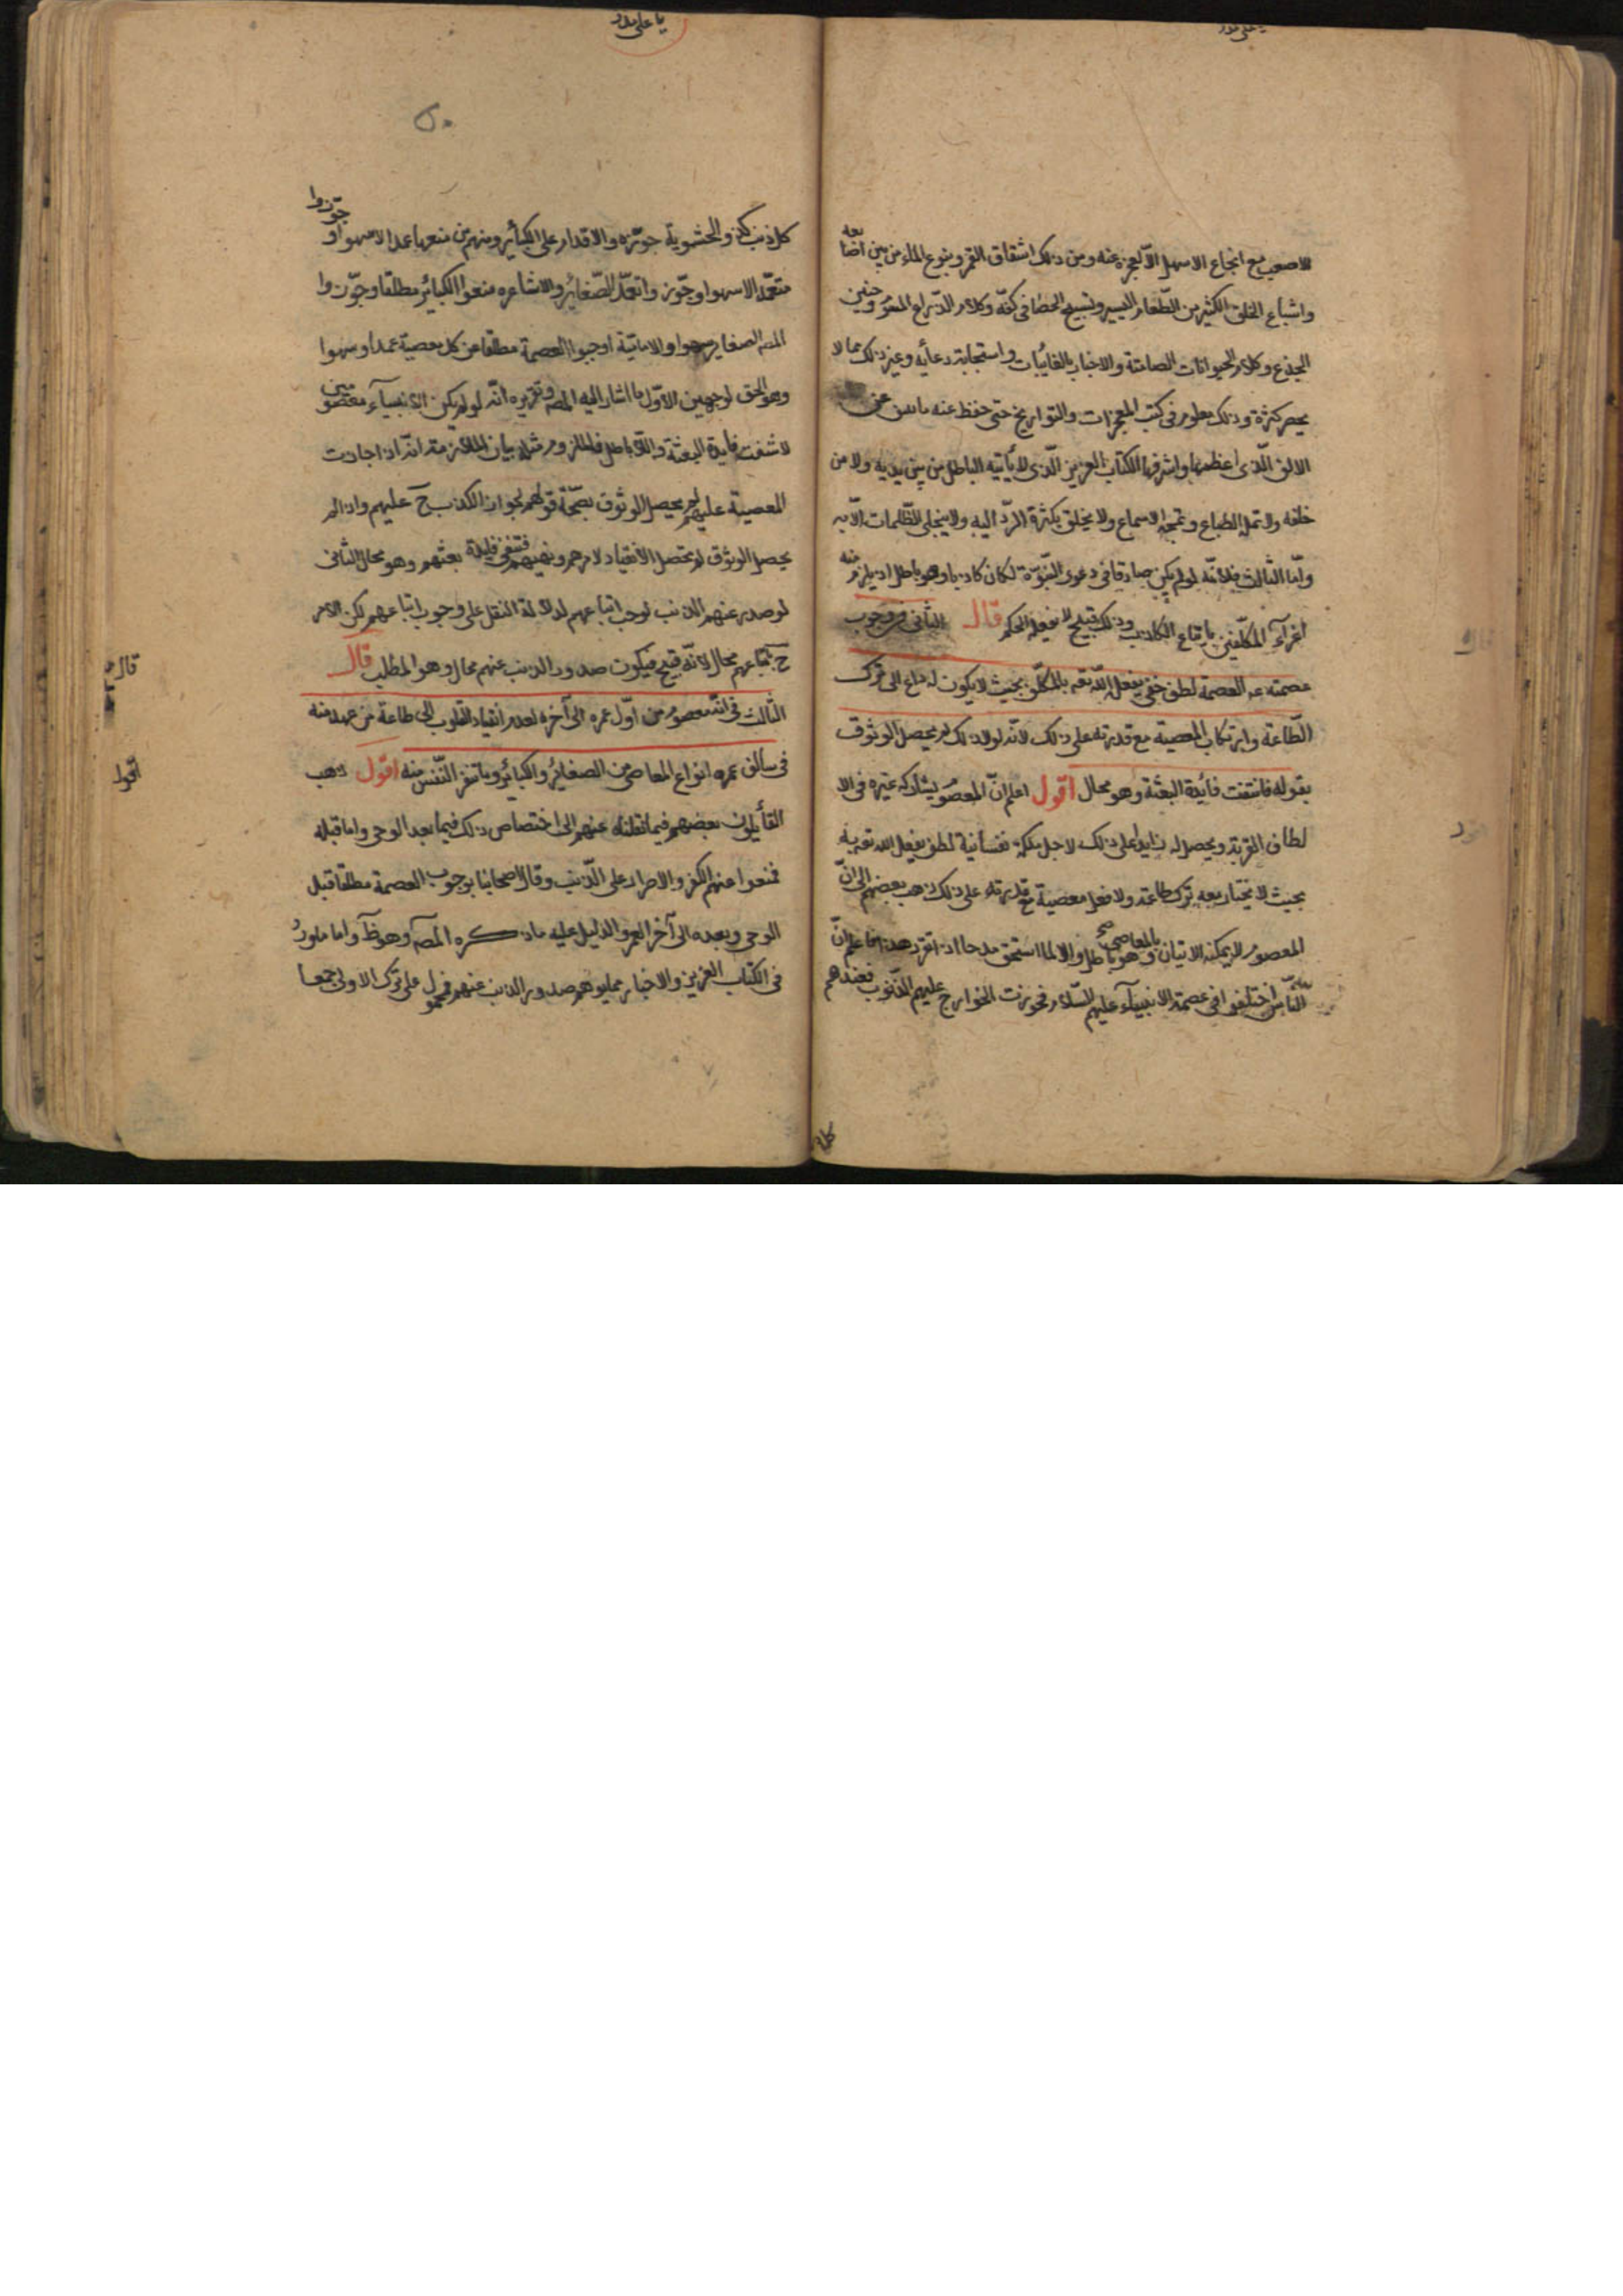 يا على مدد
للاصعب مع انجاع الاسهل الا لعجزه عنه ومن ذلك اشقاق القمر وينوع الماء من بين اصابعه
واشباع الخلق الكثير من الطعام اليسير وتسبيح الحصا فى كفه وكلام الذراع المسموم وحنين
الجذع وكلام الحيوانات الصامتة والاخبار بالغائبات واستجابة دعائه وغير ذلك مما لا
يحصر كثرة وذلك معلوم فى كتب المعجزات والتواريخ حتى حفظ عنه ما ينيف عن
الالف الذى اعظمها واشرفها الكتاب العزيز الذى لا يأتيه الباطل من بين يديه ولا من
خلفه ولا تمله الطباع ولا تمجه الاسماع ولا يخلق بكثرة الرد اليه ولا ينجلى الظلمات الا به
واما الثالث فلانه لو لم يكن صادقا فى دعوى النبوة لكان كاذبا وهو باطل اذ يلزم منه
اغراء المكلفين باتباع الكاذب وذلك قبيح لا يفعله الحكيم قال الثانى فى وجوب
عصمته عه العصمة لطف خفى يفعل الله تعه بالمكلف بحيث لا يكون له داع الى ترك
الطاعة وارتكاب المعصية مع قدرته على ذلك لانه لولا ذلك لم يحصل الوثوق
بقوله فانتفت فائدة البعثة وهو محال اقول اعلم ان المعصوم يشاركه غيره فى الا
لطاف المقربة ويحصل له زايدا على ذلك لاجل ملكة نفسانية لطف يفعل الله تعه به
بحيث لا يختار معه ترك طاعة ولا فعل معصية مع قدرته على ذلك ذهب بعضهم الى ان
المعصوم لا يمكنه الاتيان بالمعاصى وهو باطل والا لما استحق مدحا اذا تقرر هذا فاعلم ان
الناس اختلفوا فى عصمة الانبياء عليهم السلام فجوزت الخوارج عليهم الذنوب فعندهم
كل
يا على مدد
٥٠
كل ذنب كفر والحشوية جوزه والاقدار على الكبائر ومنهم من منعها عمدا لا سهوا وجوزوا
تعمد الاسهوا وجوز واتعمد الصغائر والاشاعره منعوا الكبائر مطلقا وجوزوا
الصغاير سهوا والامامية اوجبوا العصمة مطلقا عن كل معصية عمدا وسهوا
وهو الحق لوجهين الاول ما اشار اليه المصـ وتقريره انه لو لم يكن الانبياء معصومين
لانتفت فايدة البعثة واللازم باطل فالملزوم مثله بيان الملازمة انه اذا جازت
المعصية عليهم لم يحصل الوثوق بصحة قولهم لجواز الكذب ح عليهم واذا لم
يحصل الوثوق لم يحصل الانقياد لامرهم ونهيهم فتنفى فايدة بعثهم وهو محال الثانى
لو صدر عنهم الذنب لوجب اتباعهم لدلالة النقل على وجوب اتباعهم لكن الامر
ح باتباعهم محال لانه قبيح فيكون صدور الذنب عنهم محال وهو المطلب قال
الثالث فى انه معصوم من اول عمره الى آخره لعدم انقياد القلوب الى طاعة من عهد منه
فى سالف عمره انواع المعاصى من الصغائر والكبائر وما تنفر النفس منه اقول ذهب
القائلون بعصمتهم فيما نقلناه عنهم الى اختصاص ذلك فيما بعد الوحى واما قبله
فمنعوا عنهم الكفر والاصرار على الذنب وقال اصحابنا بوجوب العصمة مطلقا قبل
الوحى وبعده الى آخر العمر والدليل عليه ما ذكره المصـ وهو ظ واما ما ورد
فى الكتاب العزيز والاخبار مما يوهم صدور الذنب عنهم فمحمول على ترك الاولى جمعا
قال
اقول